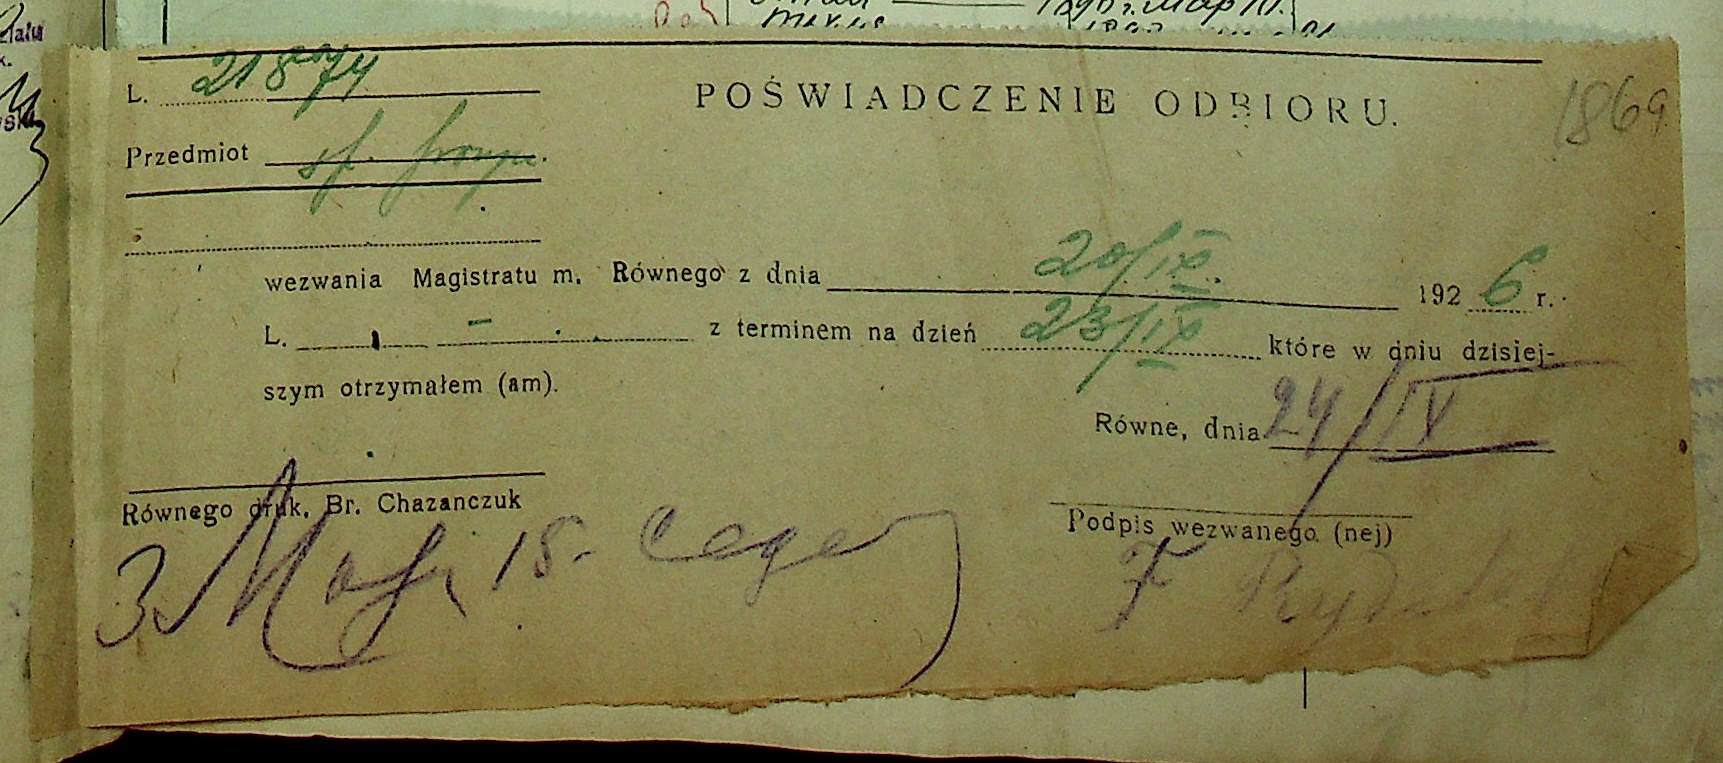 L. 21874
POŚWIADCZENIE ODBIORU.
1869
Przedmiot
wezwania Magistratu m. Równego z dnia 20/IX. 1926 r.
L. — z terminem na dzień 23/IX które w dniu dzisiej-
szym otrzymałem (am).
Równe, dnia 24/IX
Równego druk. Br. Chazanczuk
Podpis wezwanego (nej)
3 Maja 15.
F